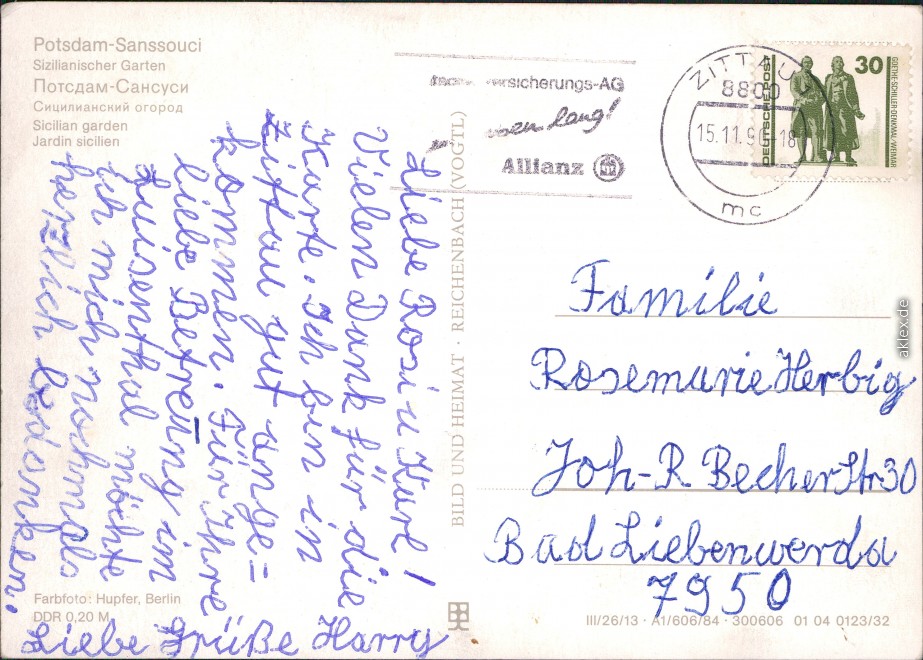 Potsdam-Sanssouci
Sizilianischer Garten
Потсдам-Сансуси
Сицилианский огород
Sicilian garden
Jardin sicilien
Liebe Rosi u Kurt!
Vielen Dank für die
Karte. Ich bin in
Zittau gut ange=
kommen. Für Ihre
liebe Betreung im
Luisenthal möchte
ich mich nochmals
herzlich bedanken.
Liebe Grüße Harry
Farbfoto: Hupfer, Berlin
DDR 0,20 M
BILD UND HEIMAT · REICHENBACH (VOGTL)
ersicherungs-AG
lang!
Allianz
ZITTAU 1
8800
15.11.90 18
mc
DEUTSCHE POST
30
GOETHE-SCHILLER-DENKMAL/WEIMAR
Familie
Rosemarie Herbig
Joh-R Becher Str 30
Bad Liebenwerda
7950
III/26/13 · A1/606/84 · 300606 01 04 0123/32
aklex.de